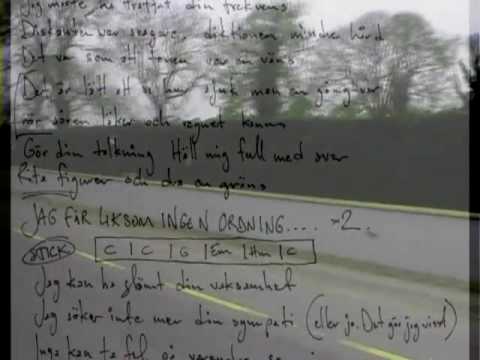 Jag måste ha träffat din frekvens
Diskanten var svagare, diktionen mindre hård
Det var som att tonen var en väns
Det är lätt att se hur sjuk man en gång var
när såren läker och regnet kommer
Gör din tolkning Häll mig full med svar
Rita figurer och dra en gräns
JAG FÅR LIKSOM INGEN ORDNING.... -2.
STICK C | C | G | Em | Hm | C
Jag kan ha glömt din veksamhet
Jag söker inte mer din sympati (eller jo. Det gör jag visst)
Inga kan ta fel på varandra